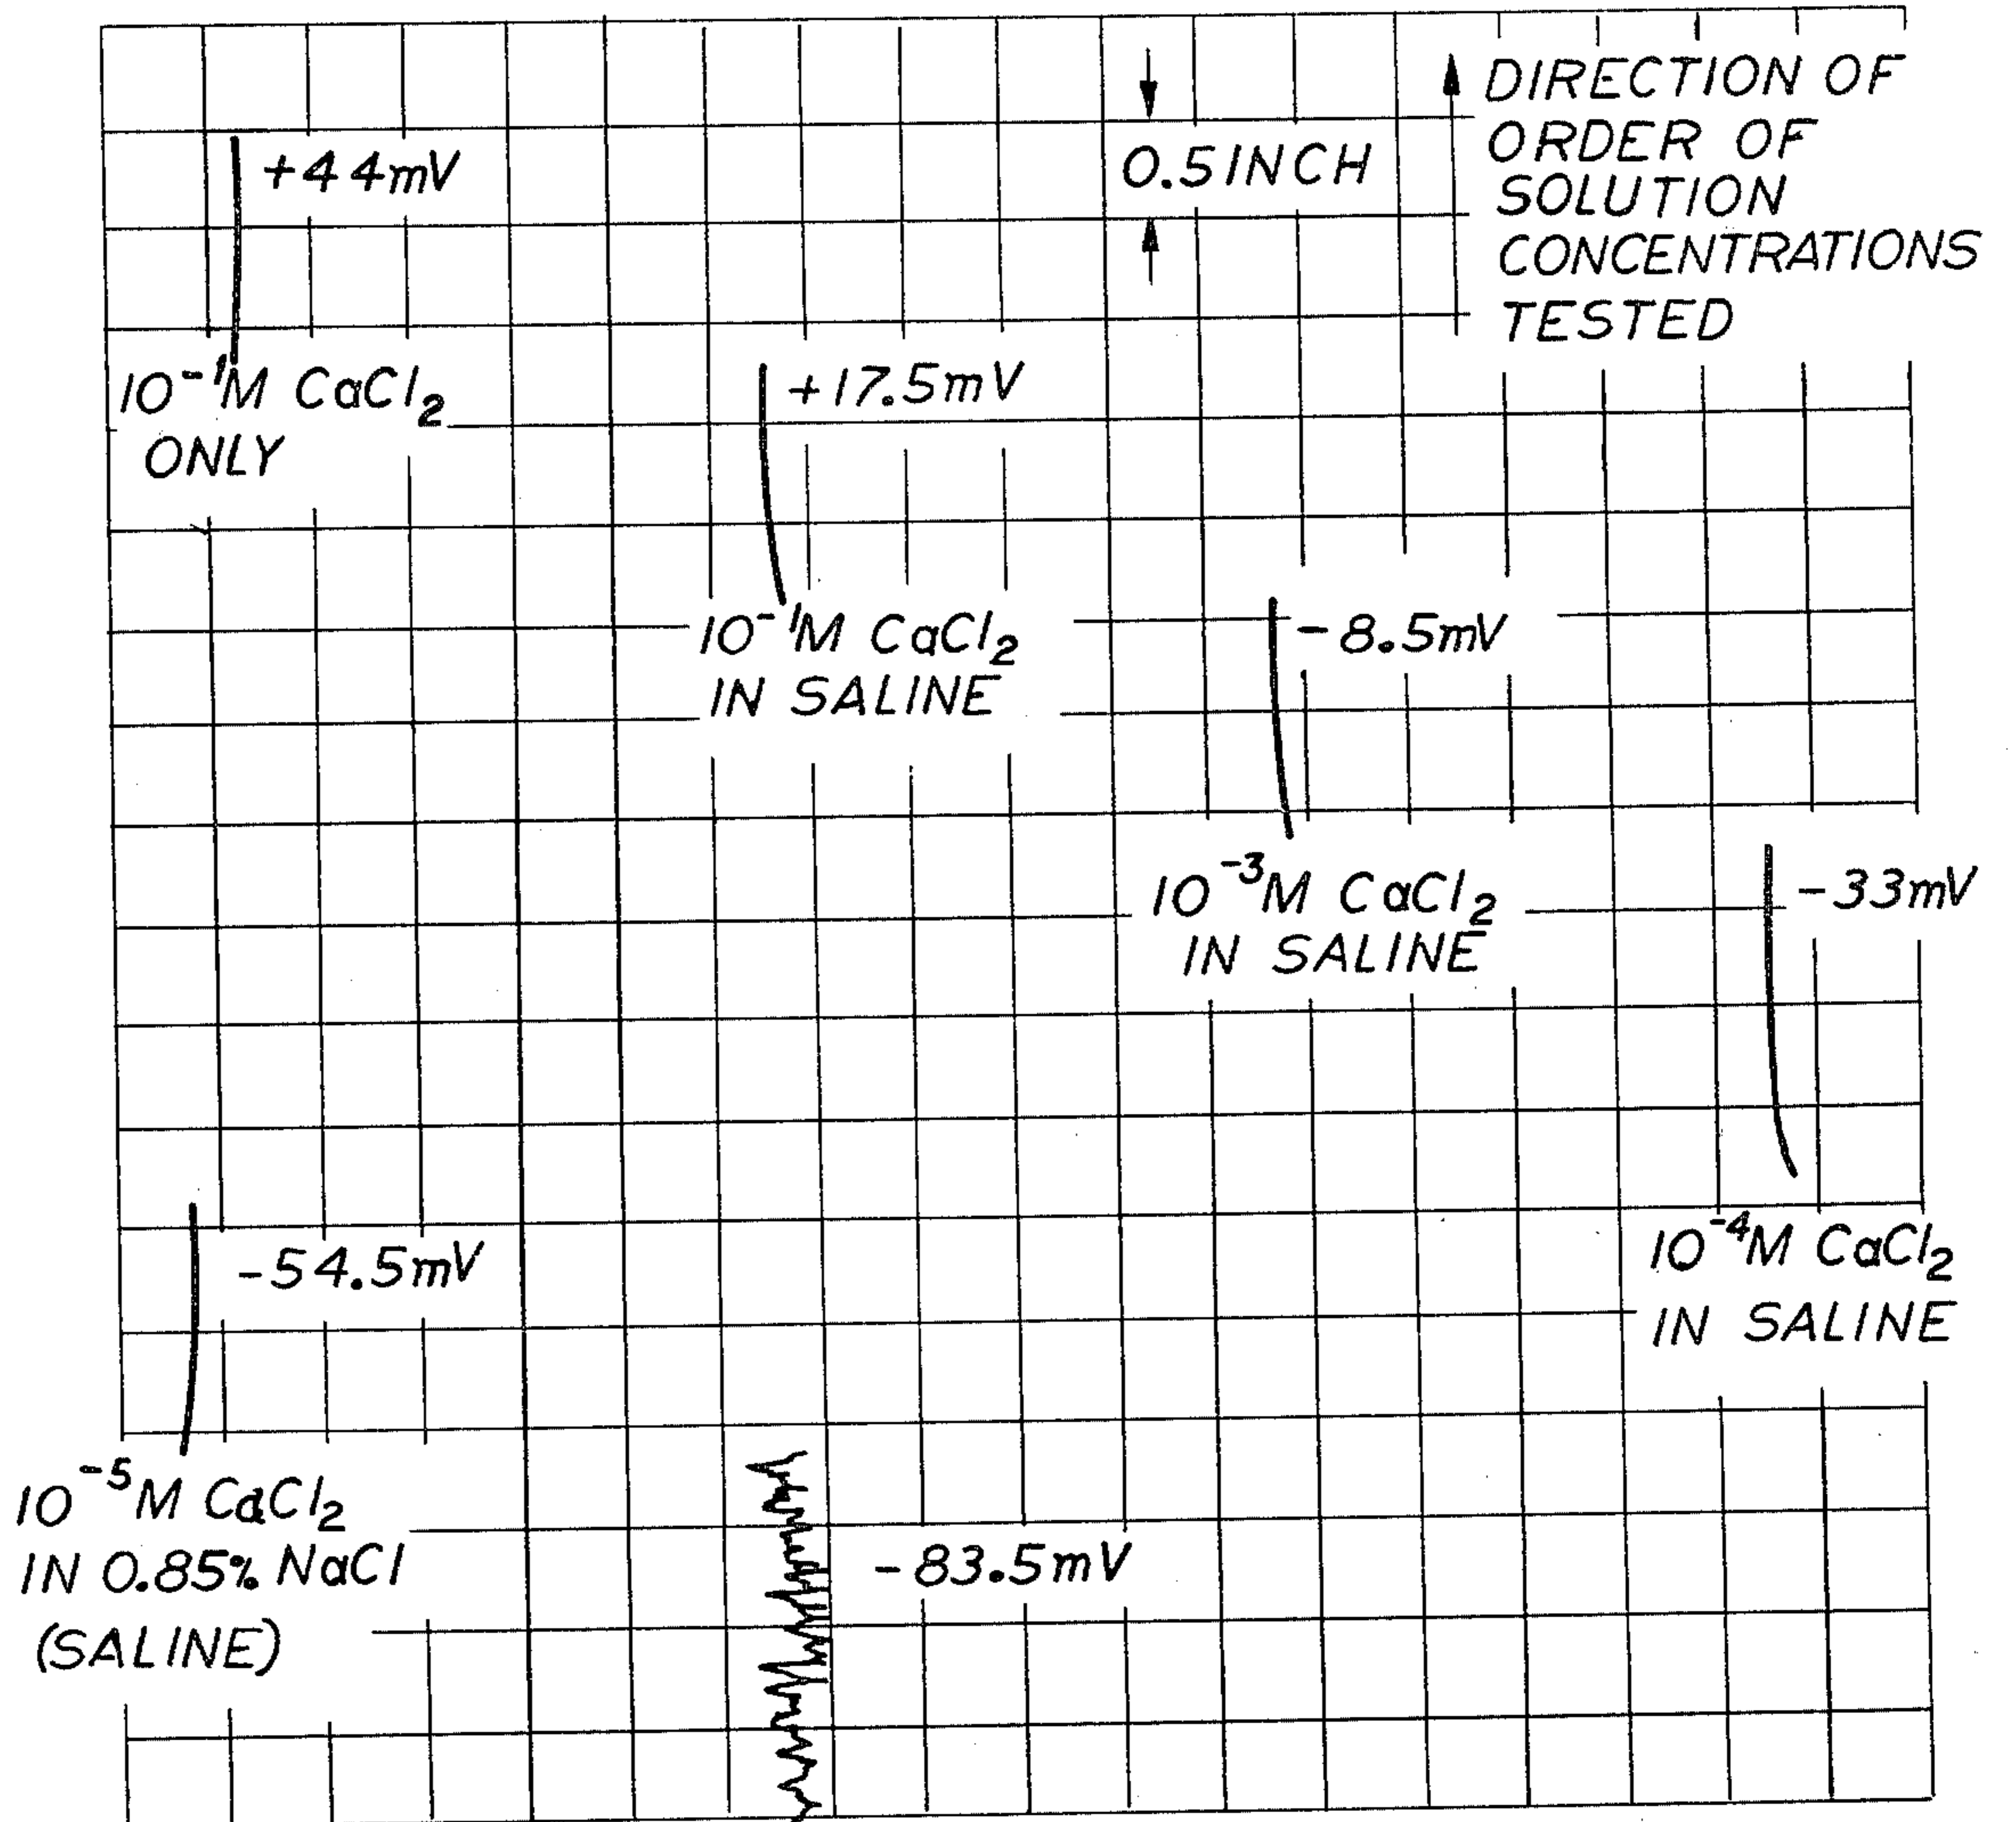 DIRECTION OF
ORDER OF
SOLUTION
CONCENTRATIONS
TESTED
0.5 INCH
+44mV
10⁻¹M CaCl₂
ONLY
+17.5mV
10⁻¹M CaCl₂
IN SALINE
-8.5mV
10⁻³M CaCl₂
IN SALINE
-33mV
10⁻⁴M CaCl₂
IN SALINE
-54.5mV
10⁻⁵M CaCl₂
IN 0.85% NaCl
(SALINE)
-83.5mV